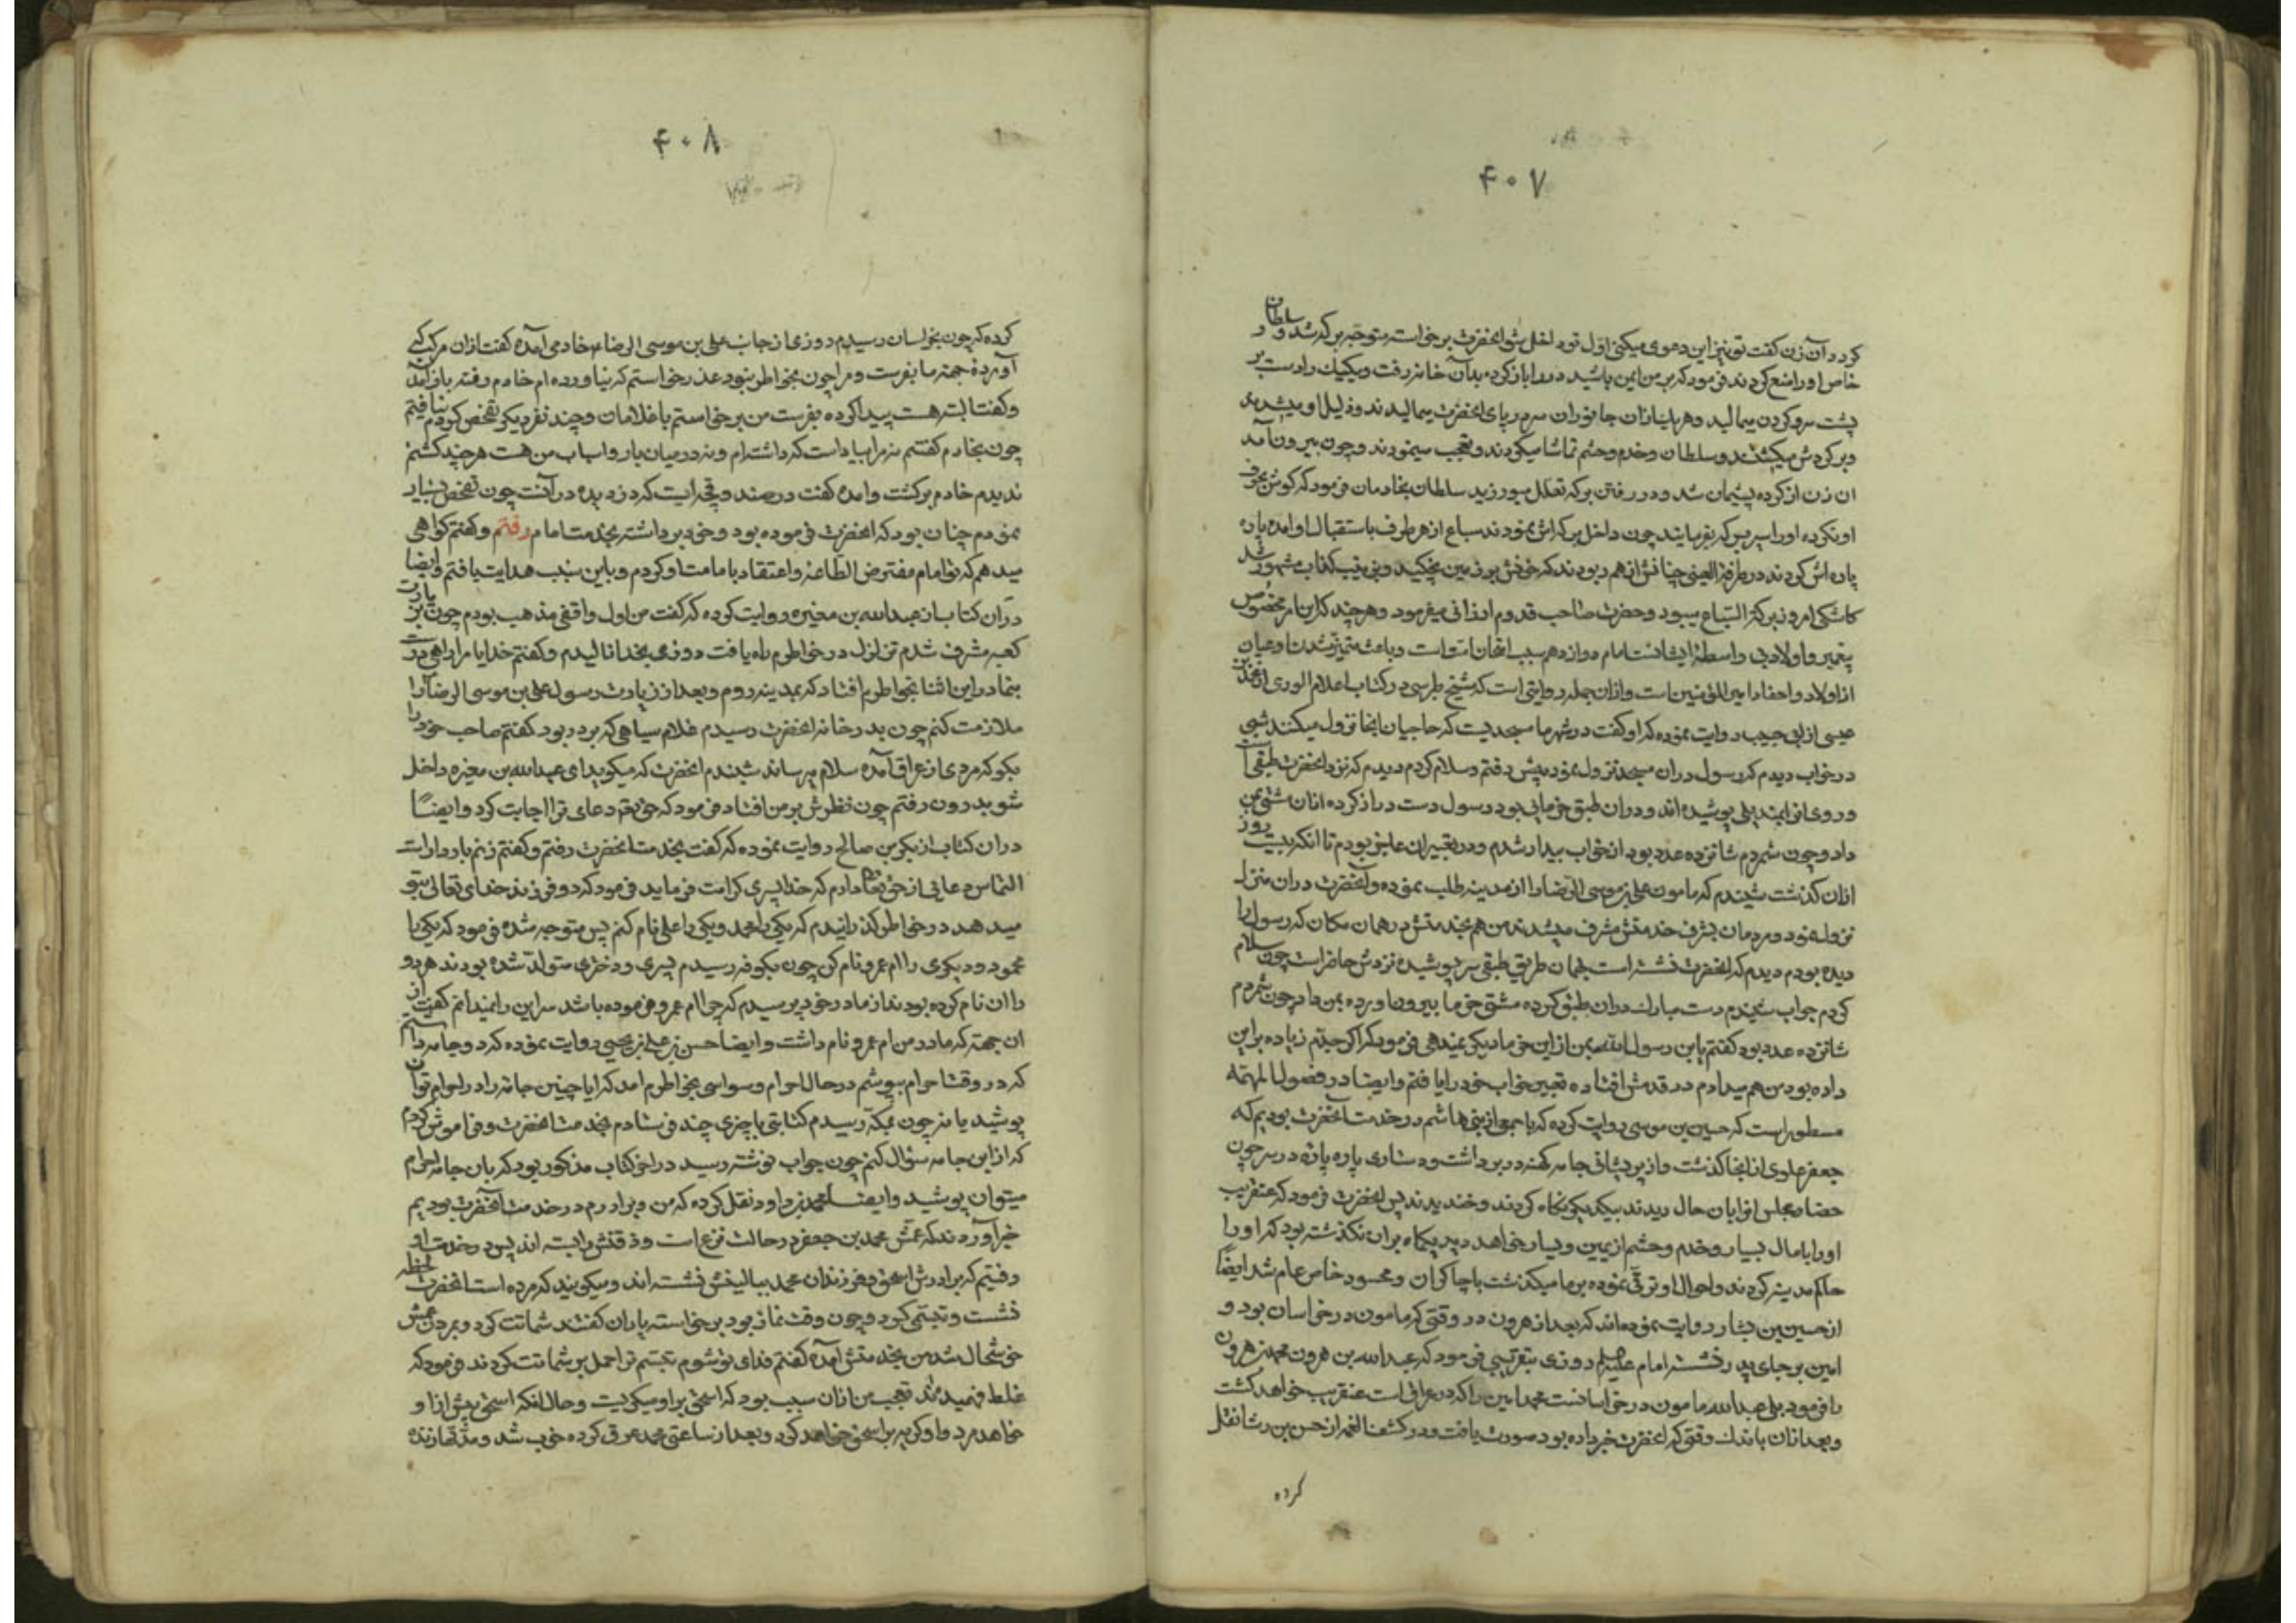 ۴۰۷
کرد و آن زن گفت تو نیز این دعوی میکنی اول تو داخل شو انحضرت برخاسته متوجه برکه شد و سلطان و
خاص او را منع کردند فرمود که بر من ایمن باشید در را باز کرده بدان خانه رفت و یکیک را دست بر
پشت سر و کردن میمالید و هر یک ازان جانوران سر در پای انحضرت میمالیدند و ذلیل او میشدند
و بر کردش میکشتند و سلطان و خدم و حشم تماشا میکردند و تعجب مینمودند و چون بیرون آمد
ان زن از کرده پشیمان شد و در رفتن برکه تعلل میورزید سلطان بخادمان فرمود که کوش بحرف
او نکرده او را ببرکه بفرمایند چون داخل برکه اش نمودند سباع از هر طرف باستقبال او امده پاره
پاره اش کردند در طرفة العینی چنانش از هم ربودند که خونش بر زمین نچکید و زینب کذابه مشهور شد
کاشکی امروز برکة السباع میبود و حضرت صاحب قدوم ارزانی میفرمود و هر چند که این امر مخصوص
پیغمبر و اولاد بی واسطهٔ ایشانست امام دوازدهم سبب امتحان امت است و باعث متمیز شدن مدعیان
از اولاد و احفاد امیر المؤمنین است و ازان جمله روایتی است که شیخ طبرسی در کتاب اعلام الوری از محمد بن
عیسی از ابی حبیب روایت نموده که او گفت در شهر ما مسجدیست که حاجیان انجا نزول میکنند شبی
در خواب دیدم که رسول دران مسجد نزول نموده پیش رفتم و سلام کردم دیدم که نزد انحضرت طبقی است
و روی انرا بمندیلی پوشیده اند و دران طبق خرمائی بود رسول دست دراز کرده ازان مشتی بمن
داد و چون شمردم شانزده عدد بود از خواب بیدار شدم و در تعبیر ان عاجز بودم تا انکه بیست روز
ازان گذشت شنیدم که مامون علی بن موسی الرضا را از مدینه طلب نموده و آنحضرت دران منزل
نزول نمود و مردمان بشرف خدمتش مشرف میشدند من هم بخدمتش در همان مکان که رسول را
دیده بودم دیدم که انحضرت نشسته است بهمان طریق طبقی سر پوشیده نزدش حاضر است چون سلام
کردم جواب شنیدم دست مبارک دران طبق کرده مشتی خرما بیرون اورده بمن داد چون شمردم
شانزده عدد بود گفتم یا بن رسول الله بمن ازاین خرما دیکر نمیدهی فرمود که اگر جدم زیاده براین
داده بود من هم میدادم در قدمش افتاده تعبیر خواب خود را یافتم و ایضا در فصول المهمه
مسطور است که حسین بن موسی روایت کرده که با جمعی از بنی هاشم در خدمت آنحضرت بودیم که
جعفر علوی از انجا گذشت و از پریشانی جامهٔ کهنه در بر داشت و دستاری پاره پاره در سر چون
حضار مجلس او را بان حال دیدند بیکدیکر نگاه کردند و خندیدند پس انحضرت فرمود که عنقریب
او را با مال بسیار و خدم و حشم از یمین و یسار خواهید دید یکماه بران نگذشته بود که او را
حاکم مدینه کردند و احوال او ترقی نموده بر ما میگذشت با چاکران و محسود خاص عام شد ایضا
از حسین بن بشار روایت نموده اند که بعد از هرون در وقتی که مامون در خراسان بود و
امین بر جای پدر نشسته امام علیه السلم روزی بتقریبی فرمود که عبدالله بن هرون محمد بن هرون
را فرمود بلی عبدالله مامون در خراسانست محمد امین را که در عراق است عنقریب خواهد کشت
و بعد ازان باندک وقتی که انحضرت خبر داده بود صورت یافت و در کشف الغمه از حسن بن وشا نقل
کرده
۴۰۸
کرده که چون بخراسان رسیدم روزی از جانب علی بن موسی الرضا خادمی آمده گفت ازان مرکب که
آوردهٔ جهة ما بفرست و مرا چون بخاطر نبود عذر خواستم که نیاورده ام خادم رفته باز آمد
و گفت البته هست پیدا کرده بفرست من برخاستم با غلامان و چند نفر دیکر تفحص کردم نیافتم
چون بخادم گفتم نه مرا بیاد است که داشته ام و نه در میان بار و اسباب من هست هر چند کشتم
ندیدم خادم برکشت و امده گفت در صندوقچه ایست که در زیر در آنست چون تفحص بسیار
نمودم چنان بود که انحضرت فرموده بود و خود برداشته بخدمت امام رفتم و گفتم کواهی
میدهم که تو امام مفترض الطاعة و اعتقاد بامامت او کردم و باین سبب هدایت یافتم و ایضا
در آن کتاب از عبدالله بن مغیره روایت کرده که گفت من اول واقفی مذهب بودم چون بزیارت
کعبه مشرف شدم تزلزل در خواطرم راه یافت روزی بخدا نالیدم و گفتم خدایا مرا راهی درست
بنما در این اثنا بخواطرم افتاد که بمدینه روم و بعد از زیارت رسول علی بن موسی الرضا را
ملازمت کنم چون بدر خانه انحضرت رسیدم غلام سیاهی که بر در بود گفتم صاحب خود را
بکو که مردی از عراق آمده سلام میرساند شنیدم انحضرت که میکوید ای عبدالله بن مغیره داخل
شو بدرون رفتم چون نظرش بر من افتاد فرمود که حق تعالی دعای ترا اجابت کرد و ایضاً
دران کتاب از بکر بن صالح روایت نموده که گفت بخدمت انحضرت رفتم و گفتم زنم باردار است
التماس دعائی از حق تعالی دارم که خدا پسری کرامت فرماید فرمود که دو فرزند خدای تعالی بتو
میدهد در خواطر گذرانیدم که یکی را محمد و یکی را علی نام کنم پس متوجه شده فرمود که یکی را
محمود و دیکری را ام عمرو نام کن چون بکوفه رسیدم پسری و دختری متولد شده بودند هر دو
را ان نام کرده بودند از مادر خود پرسیدم که چرا ام عمرو فرموده باشد سر این را نمیدانم گفت از
ان جهته که مادر من ام عمرو نام داشت و ایضا حسن بن علی بن یحیی روایت نموده کرد و جامه داشتم
که در وقت احرام بپوشم در حال احرام وسواسی بخواطرم امد که ایا چنین جامه را در احرام توان
پوشید یا نه چون بمکه رسیدم کتابتی با چیزی چند فرستادم بخدمت انحضرت و فراموش کردم
که از این جامه سؤال کنم چون جواب نوشته رسید در اخر کتاب مذکور بود که بان جامه احرام
میتوان پوشید و ایضا محمد بن داود نقل کرده که من و برادرم در خدمت آنحضرت بودیم
خبر آوردند که عمش محمد بن جعفر در حالت نزع است و ذقنش را بسته اند پس در خدمت او
رفتیم که برادرش اسحق و فرزندان محمد ببالینش نشسته اند و میکریند که مرده است انحضرت لحظه
نشست و تبسمی کرد و چون وقت نماز بود برخواسته یاران گفتند شماتت کرد و بمردن عمش
خوشحال شد من بخدمتش آمده گفتم فدای تو شوم تبسم ترا حمل بر شماتت کردند فرمود که
غلط فهمیدند تعجب من ازان سبب بود که اسحق براو میکریست و حال انکه اسحق پیش از او
خواهد مرد و او کریه بر اسحق خواهد کرد و بعد از ساعتی محمد عرق کرده خوب شد و مدتها زنده